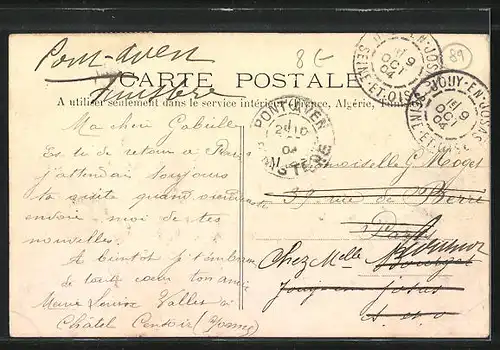 Pont-Aven
Finistère
8E
89
CARTE POSTALE
A utiliser seulement dans le service intérieur (France, Algérie, Tunisie
JOUY-EN-JOSAS
SEINE-ET-OISE
9
OCT
04
JOUY-EN-JOSAS
SEINE-ET-OISE
9
OCT
04
PONT-AVEN
FINISTÈRE
04
Ma chère Gabrielle
Es tu de retour à Paris
j'attendais toujours
ta visite quand
envoie moi de tes
nouvelles.
A bientôt je t'embrasse
de tout cœur ton amie
Marie Louise Valles à
Châtel Censoir (Yonne)
Mademoiselle G Moget
39 rue de Berri
Paris
Chez Melle
Jouy en Josas
S et O